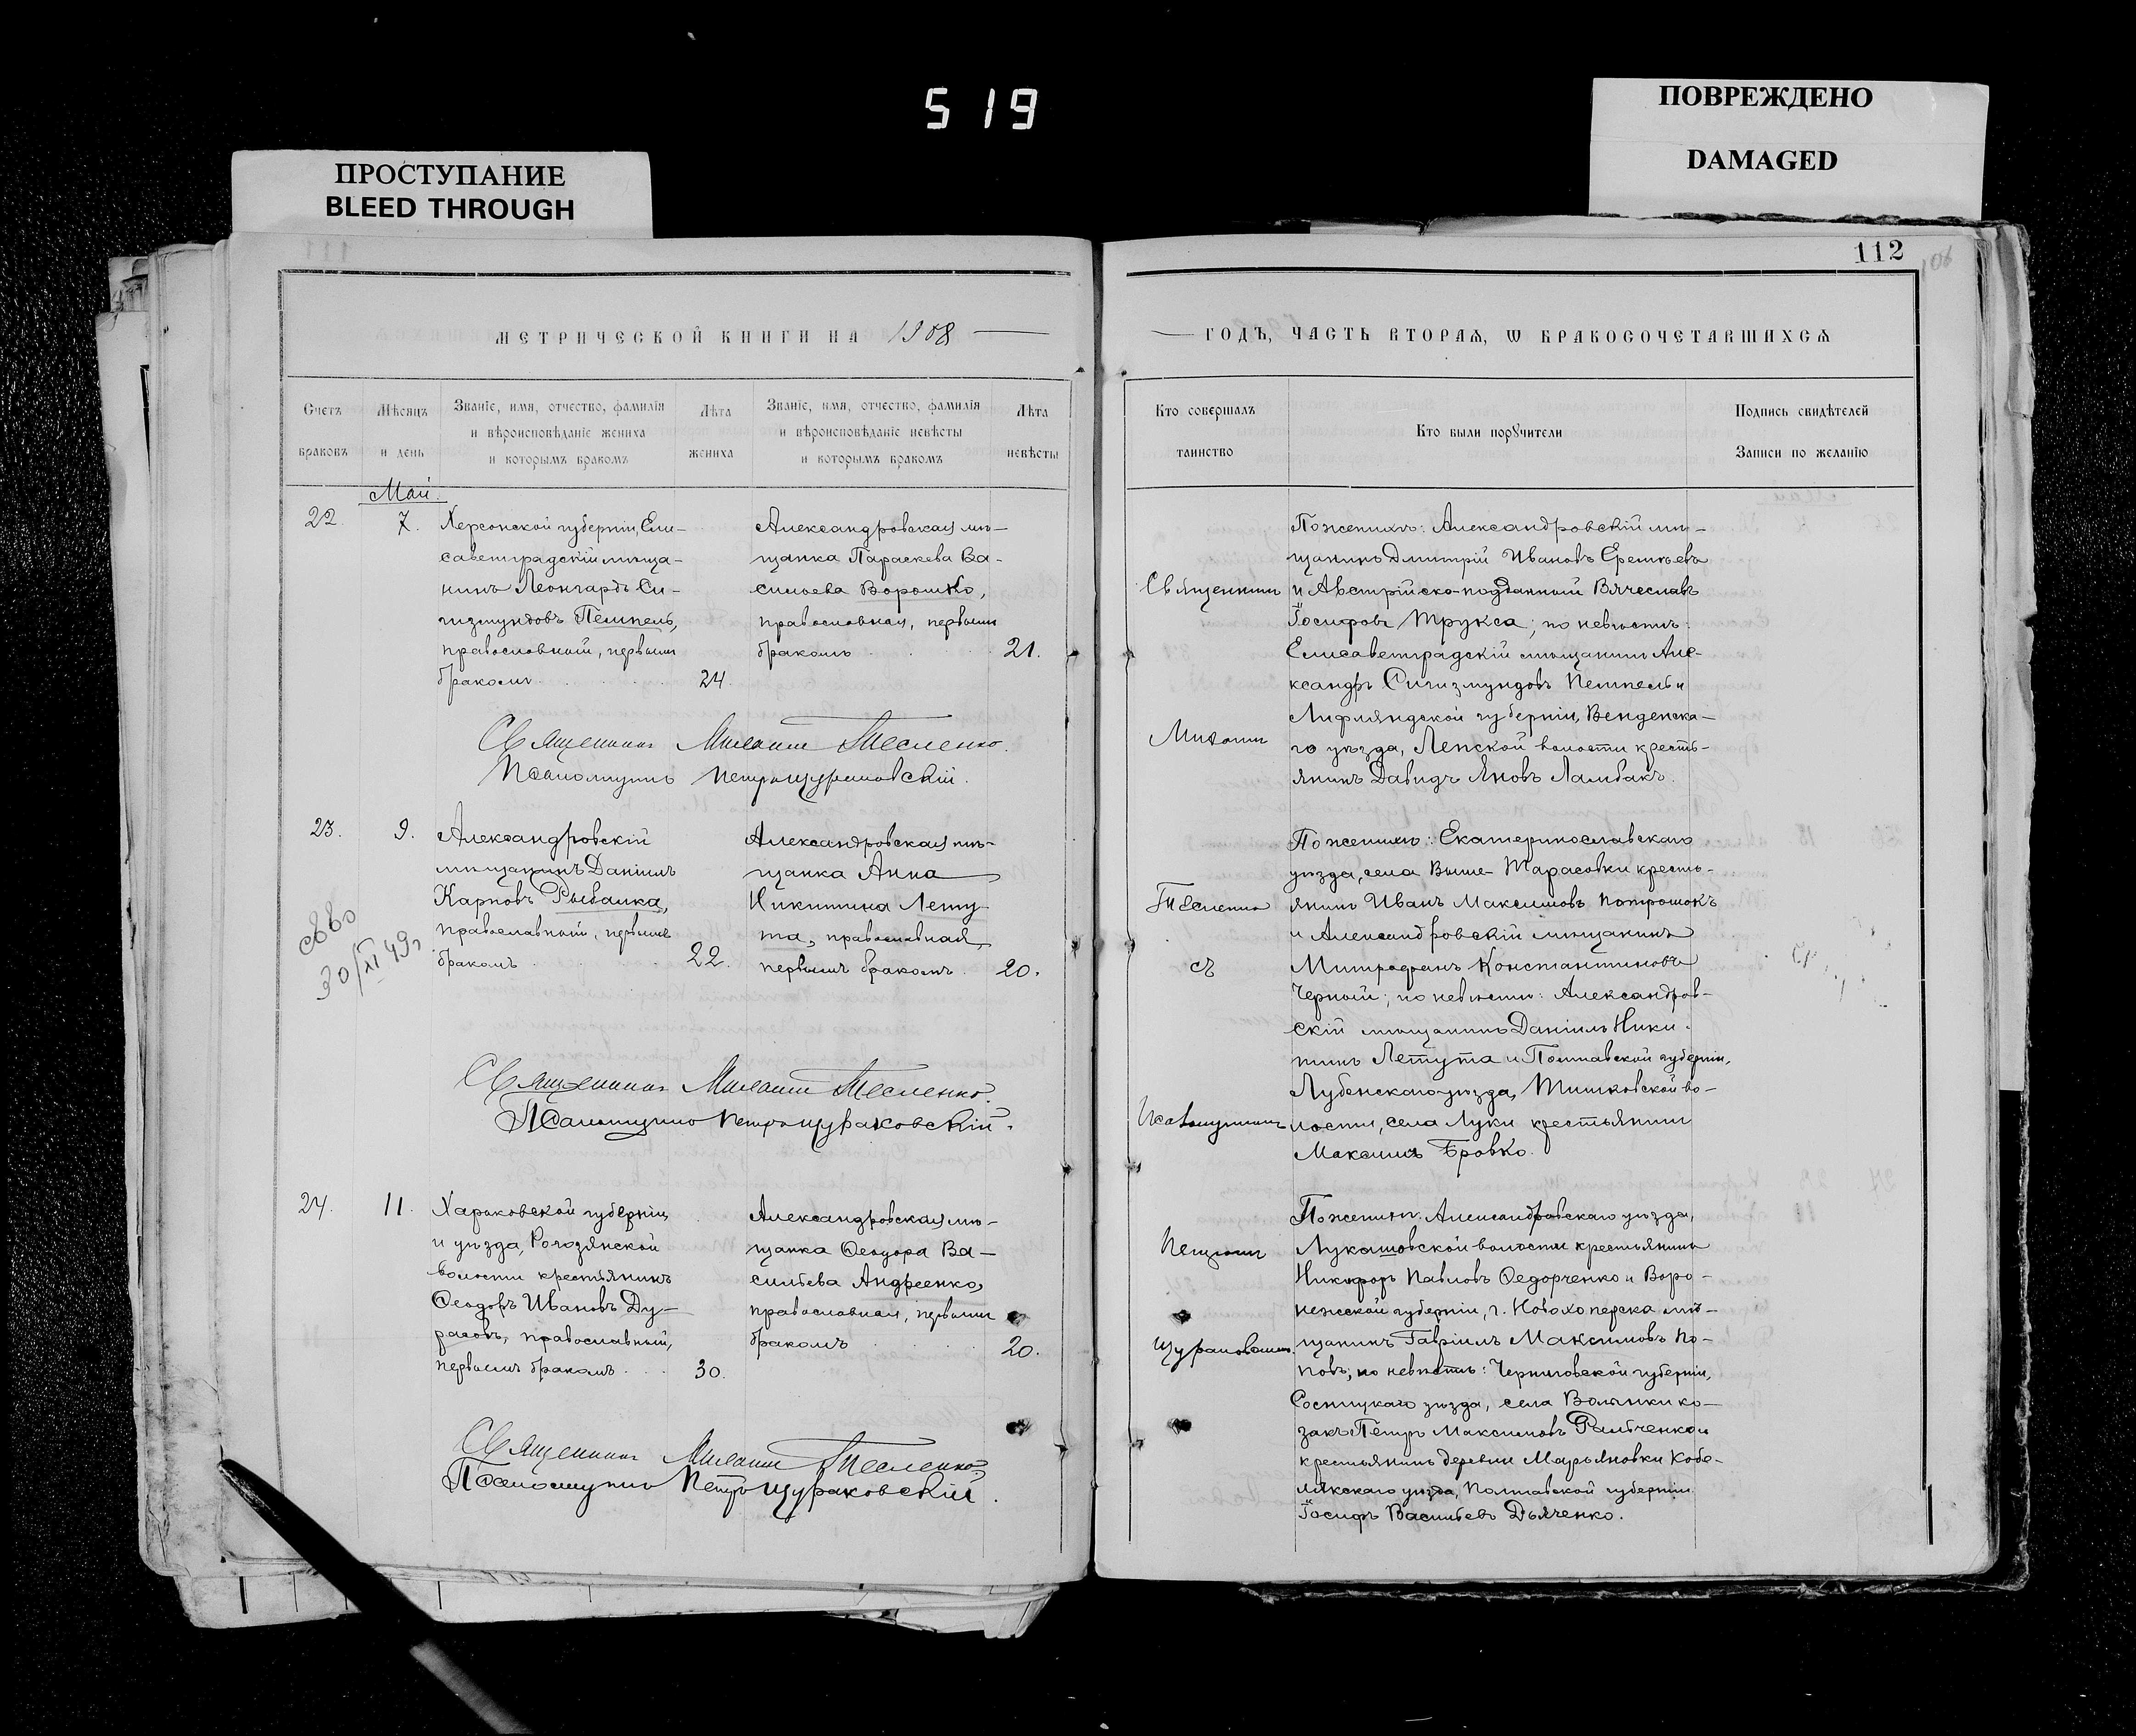 519
ПРОСТУПАНИЕ
BLEED THROUGH
ПОВРЕЖДЕНО
DAMAGED
МЕТРИЧЕСКОЙ КНИГИ НА 1908
Счетъ браковъ
Мѣсяцъ и день
Званіе, имя, отчество, фамилія
и вѣроисповѣданіе жениха
и которымъ бракомъ
Лѣта жениха
Званіе, имя, отчество, фамилія
и вѣроисповѣданіе невѣсты
и которымъ бракомъ
Лѣта невѣсты
Май.
22. 7.
Херсонской губерніи, Ели-
саветградскій мѣща-
нинъ Леонгардъ Си-
гизмундовъ Пемпель,
православный, первымъ
бракомъ 24.
Александровская мѣ-
щанка Параскева Ва-
сильева Ворошко,
православная, первымъ
бракомъ 21.
Священникъ Тесленко.
Псаломщикъ Петръ Щураковскій.
23. 9.
Александровскій
мѣщанинъ Даніилъ
Карповъ Рыбалка,
православный, первымъ
бракомъ 22.
Александровская мѣ-
щанка Анна
Никитина Лету-
та, православная,
первымъ бракомъ 20.
30/XI 49г
Священникъ Тесленко.
Псаломщикъ Петръ Щураковскій.
24. 11.
Харьковской губерніи
и уѣзда, Рогозянской
волости крестьянинъ
Ѳеодоръ Ивановъ Ду-
расовъ, православный,
первымъ бракомъ 30.
Александровская мѣ-
щанка Ѳеодора Ва-
сильева Андреенко,
православная, первымъ
бракомъ 20.
Священникъ Тесленко.
Псаломщикъ Петръ Щураковскій.
112
106
ГОДЪ, ЧАСТЬ ВТОРАЯ, Ѡ БРАКОСОЧЕТАВШИХСЯ
Кто совершалъ таинство
Кто были порꙋчители
Подпись свидѣтелей
Записи по желанію
Священникъ
Тесленко
съ
Псаломщикомъ
Петромъ
Щураковскимъ
По женихѣ: Александровскій мѣ-
щанинъ Дмитрій Ивановъ Еремѣевъ
и Австрійско-подданный Вячеславъ
Іосифовъ Трукса; по невѣстѣ:
Елисаветградскій мѣщанинъ Але-
ксандръ Сигизмундовъ Пемпель и
Лифляндской губерніи, Венденска-
го уѣзда, Ленской волости кресть-
янинъ Давидъ Яновъ Ламбакъ.
По женихѣ: Екатеринославскаго
уѣзда, села Выше-Тарасовки кресть-
янинъ Иванъ Максимовъ Потрошокъ
и Александровскій мѣщанинъ
Митрофанъ Константиновъ
Черный; по невѣстѣ: Александров-
скій мѣщанинъ Даніилъ Ники-
тинъ Летута и Полтавской губерніи,
Лубенскаго уѣзда, Тишковской во-
лости, села Луки крестьянинъ
Максимъ Бровко.
По женихѣ: Александровскаго уѣзда,
Лукашовской волости крестьянинъ
Никифоръ Павловъ Ѳедорченко и Воро-
нежской губерніи, г. Новохоперска мѣ-
щанинъ Гавріилъ Максимовъ По-
повъ; по невѣстѣ: Черниговской губерніи,
Сосницкаго уѣзда, села Волынки ко-
закъ Петръ Максимовъ и
крестьянинъ деревни Марьяновки Кобе-
лякскаго уѣзда, Полтавской губерніи
Іосифъ Васильевъ Дьяченко.